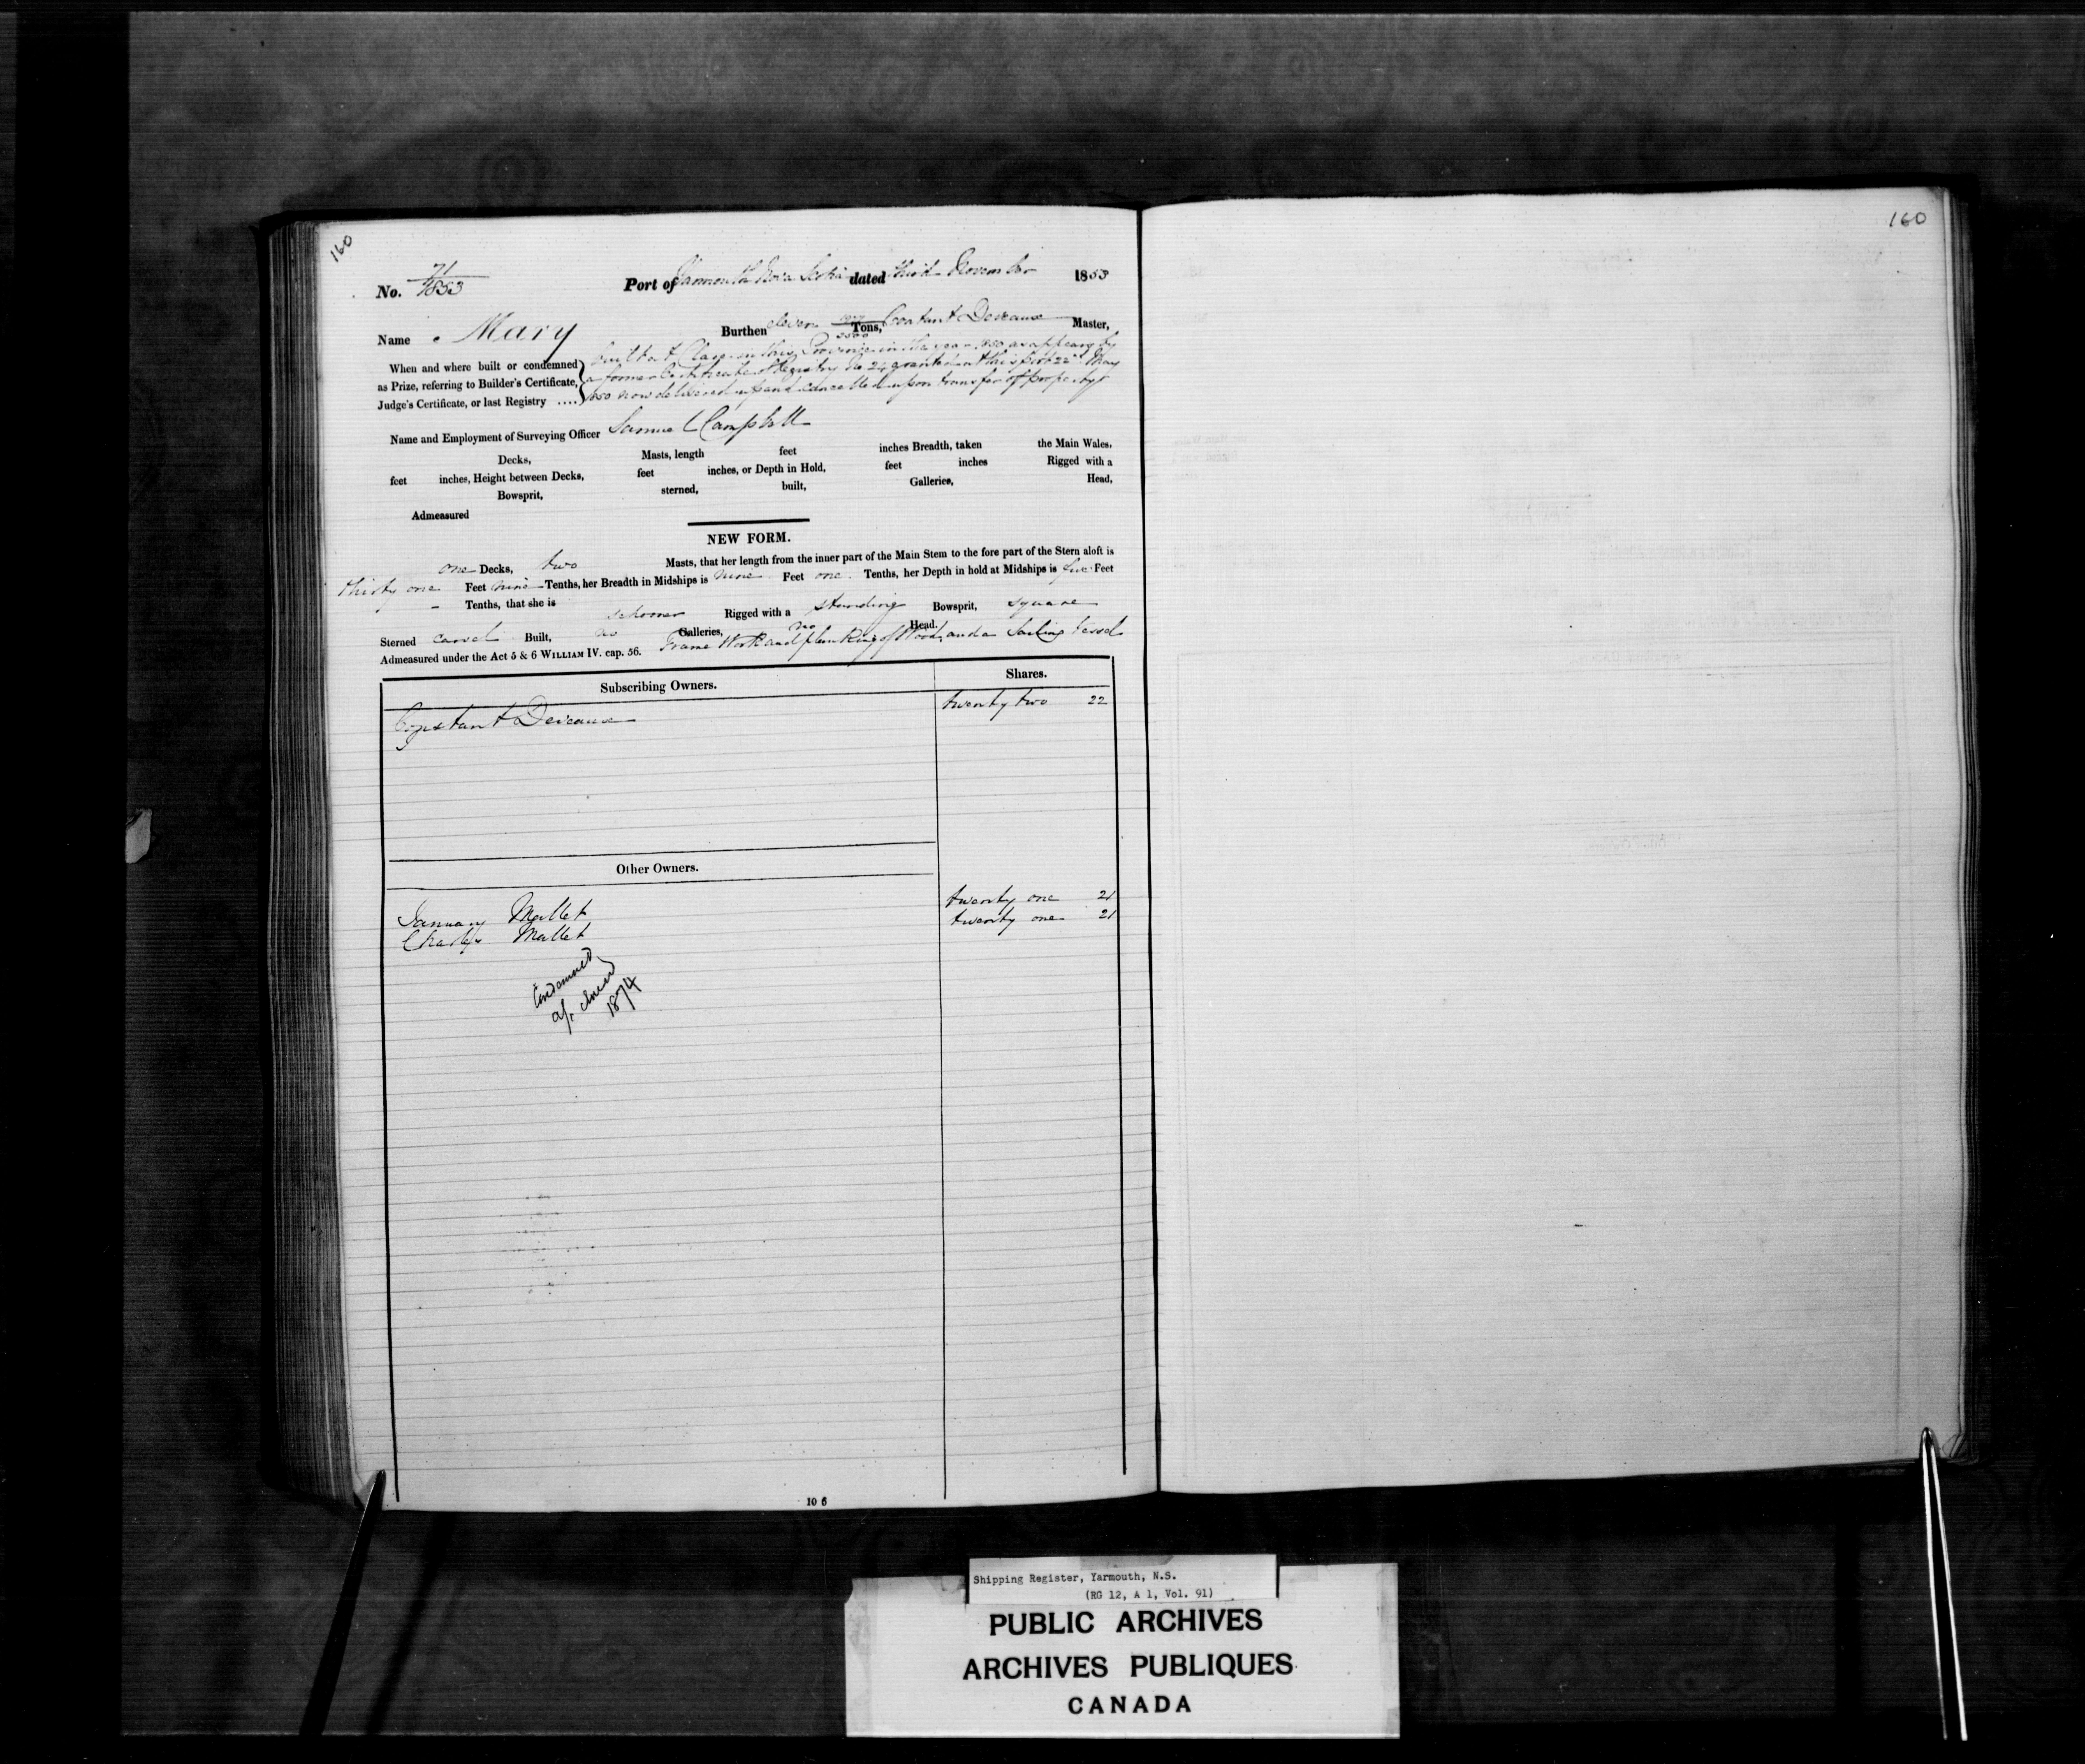 160
160
No. 71/1853 Port of Yarmouth Nova Scotia dated third November 1853
Name Mary Burthen eleven Tons, Constant Deveaux Master,
When and where built or condemned as Prize, referring to Builder's Certificate, Judge's Certificate, or last Registry ....
built at Clare in this Province in the year 1850 as appears by
a former Certificate of Registry No 24 granted at this port 22nd May
1850 now delivered up and cancelled upon transfer of property
Name and Employment of Surveying Officer Samuel Campbell
Decks, Masts, length feet inches Breadth, taken the Main Wales,
feet inches, Height between Decks, feet inches, or Depth in Hold, feet inches Rigged with a
Bowsprit, sterned, built, Galleries, Head,
Admeasured
NEW FORM.
one Decks, two Masts, that her length from the inner part of the Main Stem to the fore part of the Stern aloft is
thirty one Feet nine Tenths, her Breadth in Midships is nine Feet one Tenths, her Depth in hold at Midships is five Feet
- Tenths, that she is schooner Rigged with a standing Bowsprit, square
Sterned carvel Built, no Galleries, no Head.
Admeasured under the Act 5 & 6 WILLIAM IV. cap. 56. Frame Work and planking of Wood, and a Sailing Vessel
Subscribing Owners. Shares.
Constant Deveaux twenty two 22
Other Owners.
January Mallet twenty one 21
Charles Mallet twenty one 21
Condemned
a/c closed
1874
10 6
Shipping Register, Yarmouth, N.S.
(RG 12, A 1, Vol. 91)
PUBLIC ARCHIVES
ARCHIVES PUBLIQUES
CANADA